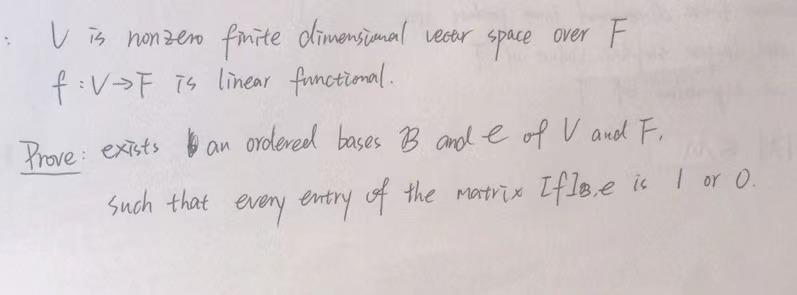 : V is nonzero finite dimensional vector space over F
f : V→F is linear functional.
Prove: exists an ordered bases B and e of V and F,
such that every entry of the matrix [f]B,e is 1 or 0.